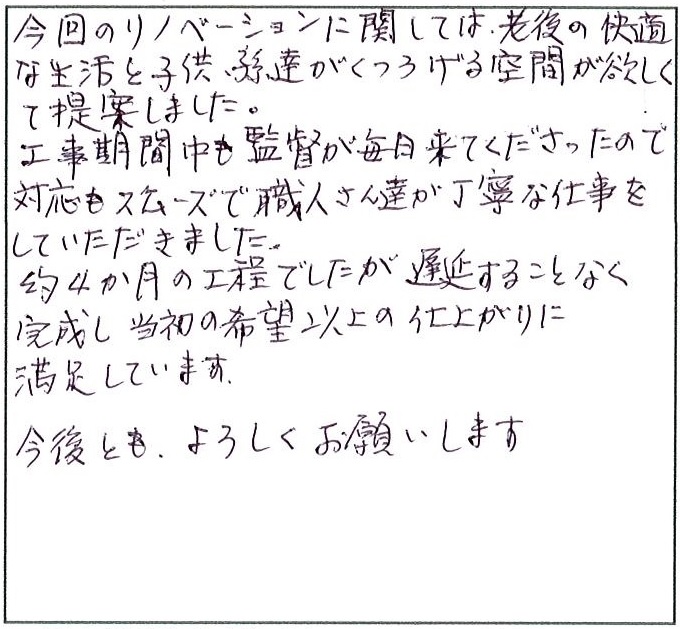 今回のリノベーションに関しては、老後の快適
な生活と子供、孫達がくつろげる空間が欲しく
て提案しました。
工事期間中も監督が毎日来てくださったので
対応もスムーズで職人さん達が丁寧な仕事を
していただきました。
約4か月の工程でしたが遅延することなく
完成し当初の希望以上の仕上がりに
満足しています。
今後とも、よろしくお願いします